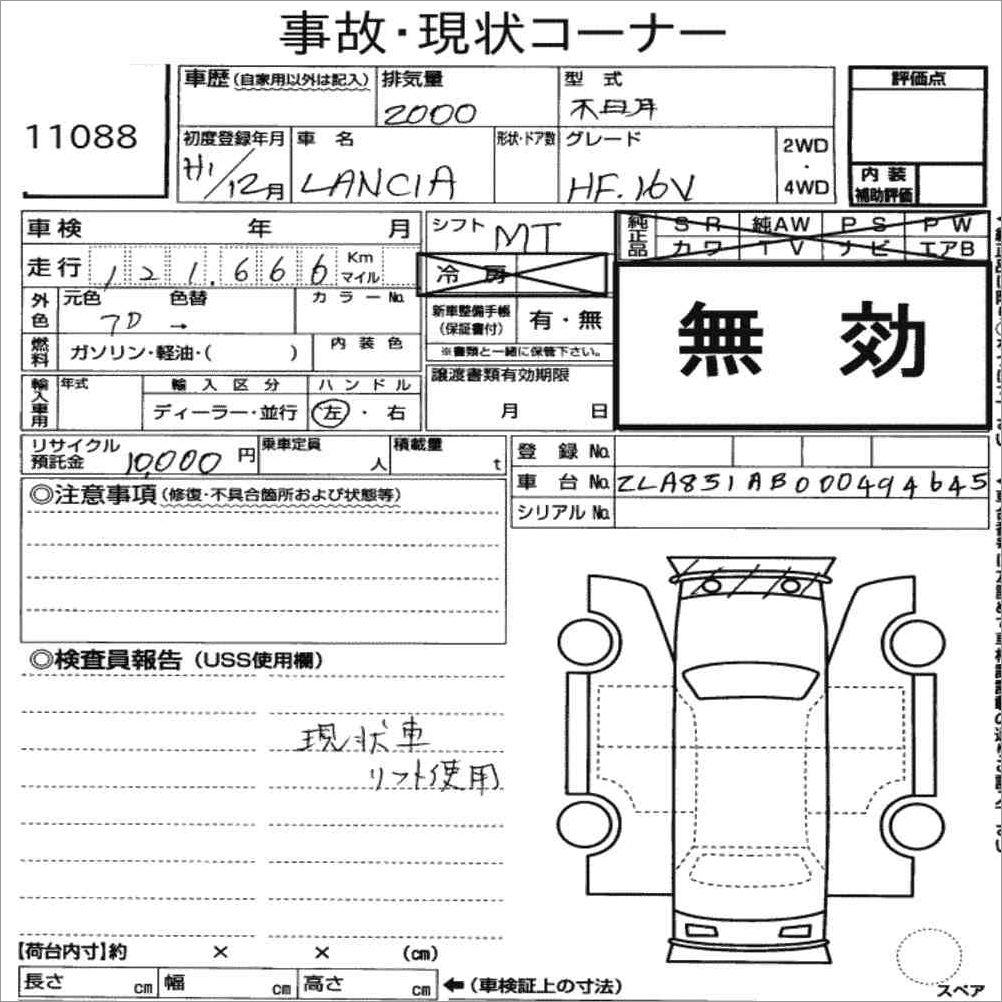 事故・現状コーナー
11088
車歴(自家用以外は記入)
排気量
2000
型 式
不明
評価点
初度登録年月
H1/12月
車 名
LANCIA
形状・ドア数
グレード
HF.16V
2WD
・
4WD
内装
補助評価
車検 年 月
走行 121.666 Km
マイル
シフト
MT
純正品
SR 純AW PS PW
カワ TV ナビ エアB
冷房
外色
元色 色替
カラーNo.
7D →
新車整備手帳
(保証書付)
有・無
※書類と一緒に保管下さい。
無 効
燃料
ガソリン・軽油・( )
内装色
輸入車用
年式
輸入区分
ディーラー・並行
ハンドル
左・右
譲渡書類有効期限
月 日
リサイクル
預託金 10,000 円
乗車定員
人
積載量
t
登 録 No.
車 台 No. ZLA831AB000494645
シリアル No.
◎注意事項(修復・不具合箇所および状態等)
◎検査員報告(USS使用欄)
現状車
リフト使用
【荷台内寸】約 × × (cm)
長さ cm 幅 cm 高さ cm ←(車検証上の寸法)
スペア